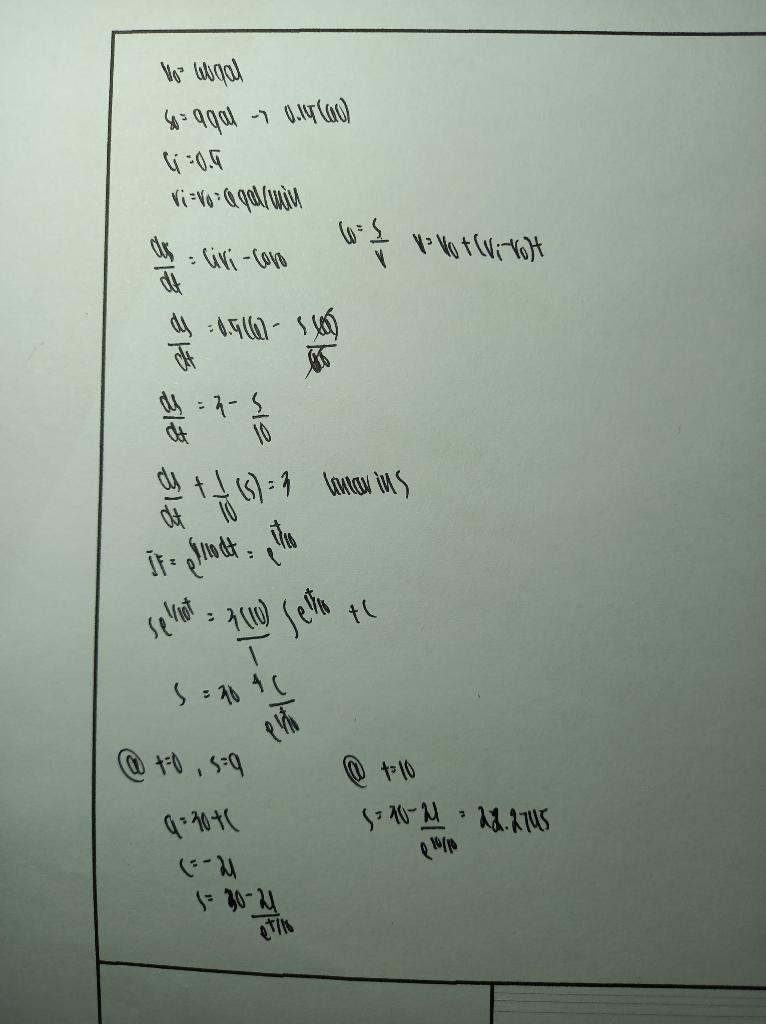 V₀ = 60gal
S₀ = 9gal → 0.15(60)
Ci = 0.5
Vi = V₀ = 6gal/min
ds/dt = CiVi - CoVo    Co = S/V    V = V₀ + (Vi - V₀)t
ds/dt = 0.5(6) -
ds/dt = 3 - S/10
ds/dt + 1/10 (S) = 3    linear in S
IF = e^∫1/10dt = e^t/10
Se^1/10t = 3(10)/1 ∫e^t/10 + C
S = 30 + C/e^t/10
@ t=0, S=9    @ t=10
9 = 30 + C    S = 30 - 21/e^10/10 = 22.2745
C = -21
S = 30 - 21/e^t/10